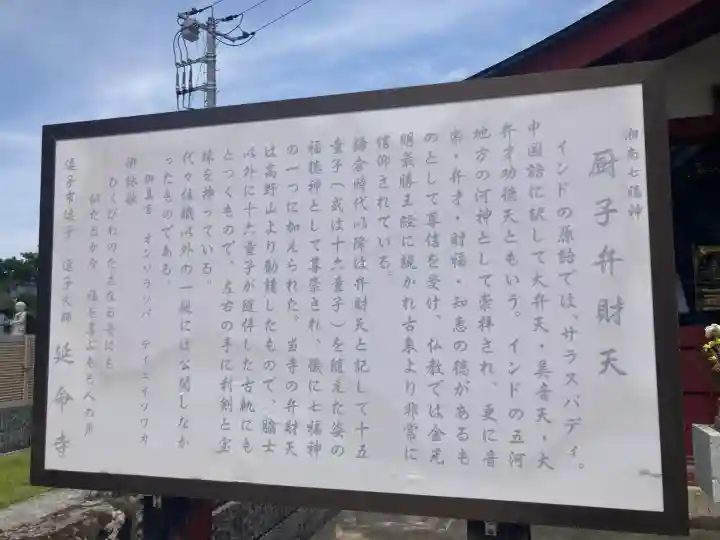 湘南七福神
厨子弁財天
インドの原語では、サラスバディ。
中国語に訳して大弁天・美音天・大
弁才功徳天ともいう。インドの五河
地方の河神として崇拝され、更に音
楽・弁才・財福・知恵の徳があるも
のとして尊信を受け、仏教では金光
明最勝王経に説かれ古来より非常に
信仰されている。
鎌倉時代以降は弁財天と記して十五
童子(或は十六童子)を随えた姿の
福徳神として尊崇され、後に七福神
の一つに加えられた。当寺の弁財天
は高野山より勧請したもので、脇士
以外に十六童子が随伴した古軌にも
とづくもので、左右の手に利剣と宝
珠を持っている。
代々住職以外の一般には公開しなか
ったものである。
御真言 オンソラソバ テイエイソワカ
御詠歌
逗子市逗子 逗子大師 延命寺